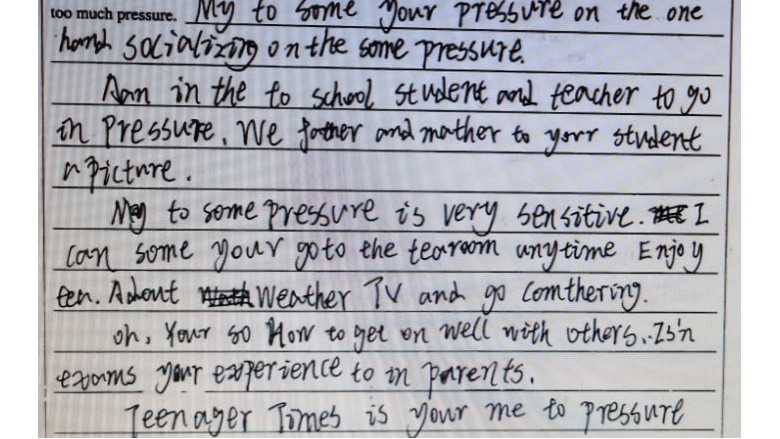 too much pressure. My to some your pressure on the one
hand socializing on the some pressure.
Aan in the to school student and teacher to go
in pressure. We father and mather to yorr student
n picture.
May to some pressure is very sensitive. I
can some your goto the tearoom anytime Enjoy
ten. About Weather TV and go comthering.
oh, Your so How to get on well with others. Is'n
exams your experience to in parents.
Teenager Times is your me to pressure